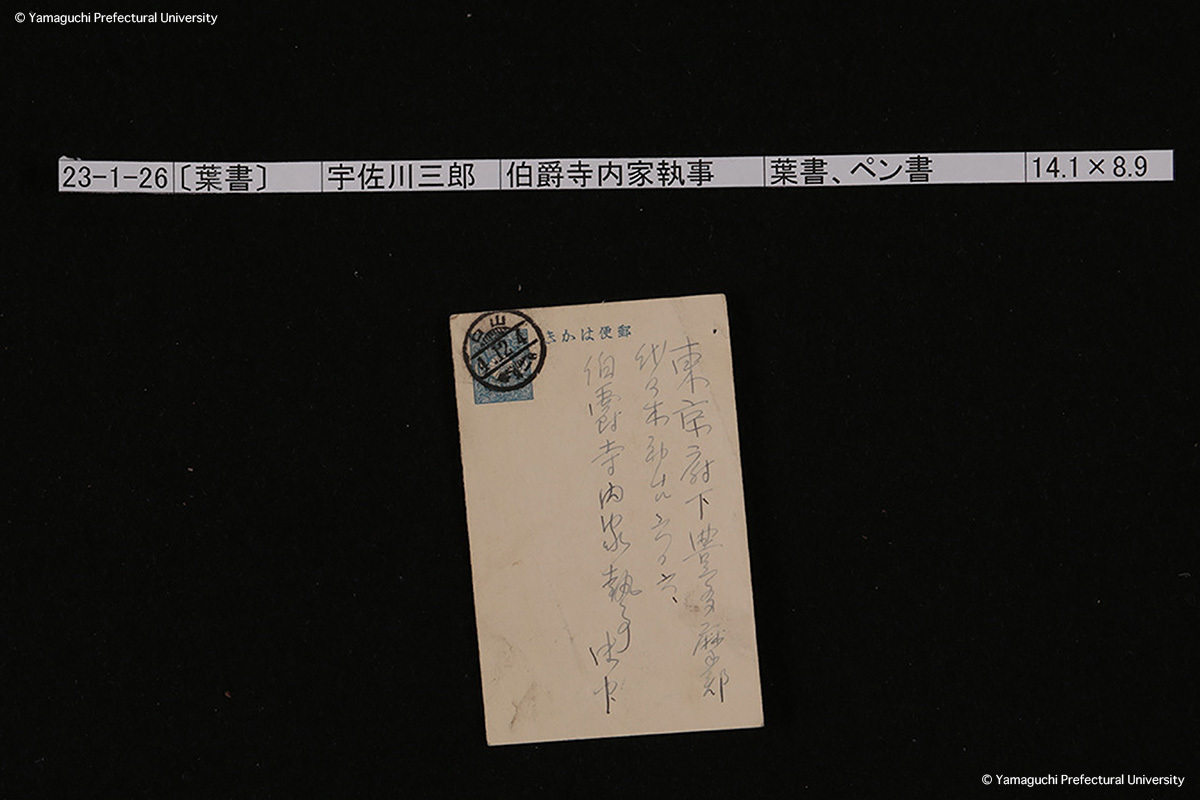 © Yamaguchi Prefectural University
23-1-26 〔葉書〕 宇佐川三郎 伯爵寺内家執事 葉書、ペン書 14.1×8.9
郵便はかき
東京府下豊多摩郡
代々木
伯爵寺内家執事
© Yamaguchi Prefectural University